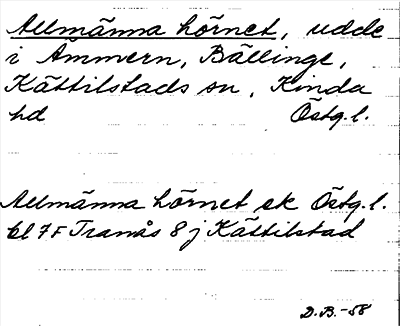 Allmänna hörnet, udde
i Ämmern, Bällinge,
Kättilstads sn, Kinda
hd Östg.l.
Allmänna hörnet ek Östg.l.
bl 7F Tranås 8 j Kättilstad
D.B.-58